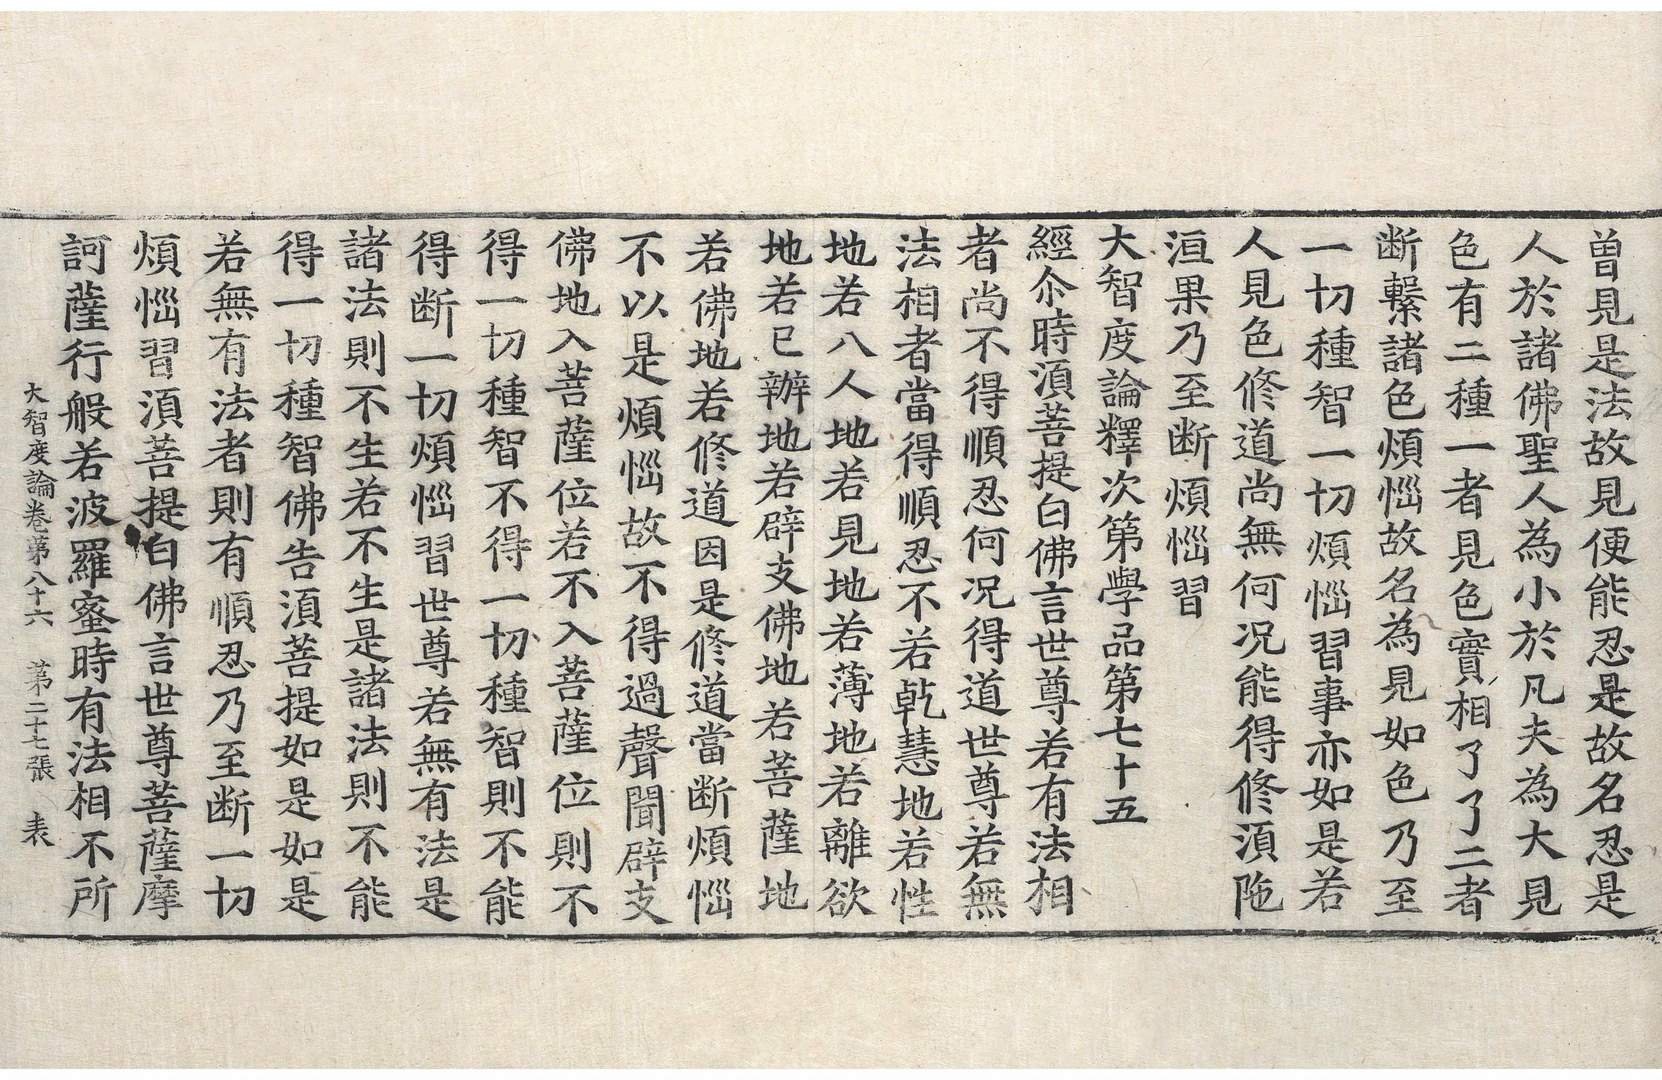 曽見是法故見便能忍是故名忍是
人於諸佛聖人為小於凡夫為大見
色有二種一者見色實相了了二者
断繫諸色煩惱故名為見如色乃至
一切種智一切煩惱習事亦如是若
人見色修道尚無何况能得修湏陁
洹果乃至断煩惱習
大智度論釋次第學品第七十五
經尒時湏菩提白佛言世尊若有法相
者尚不得順忍何况得道世尊若無
法相者當得順忍不若乾慧地若性
地若八人地若見地若薄地若離欲
地若已辦地若辟支佛地若菩薩地
若佛地若修道因是修道當断煩惱
不以是煩惱故不得過聲聞辟支
佛地入菩薩位若不入菩薩位則不
得一切種智不得一切種智則不能
得断一切煩惱習世尊若無有法是
諸法則不生若不生是諸法則不能
得一切種智佛告湏菩提如是如是
若無有法者則有順忍乃至断一切
煩惱習湏菩提白佛言世尊菩薩摩
訶薩行般若波羅蜜時有法相不所
大智度論卷苐八十六 苐二十七張 表